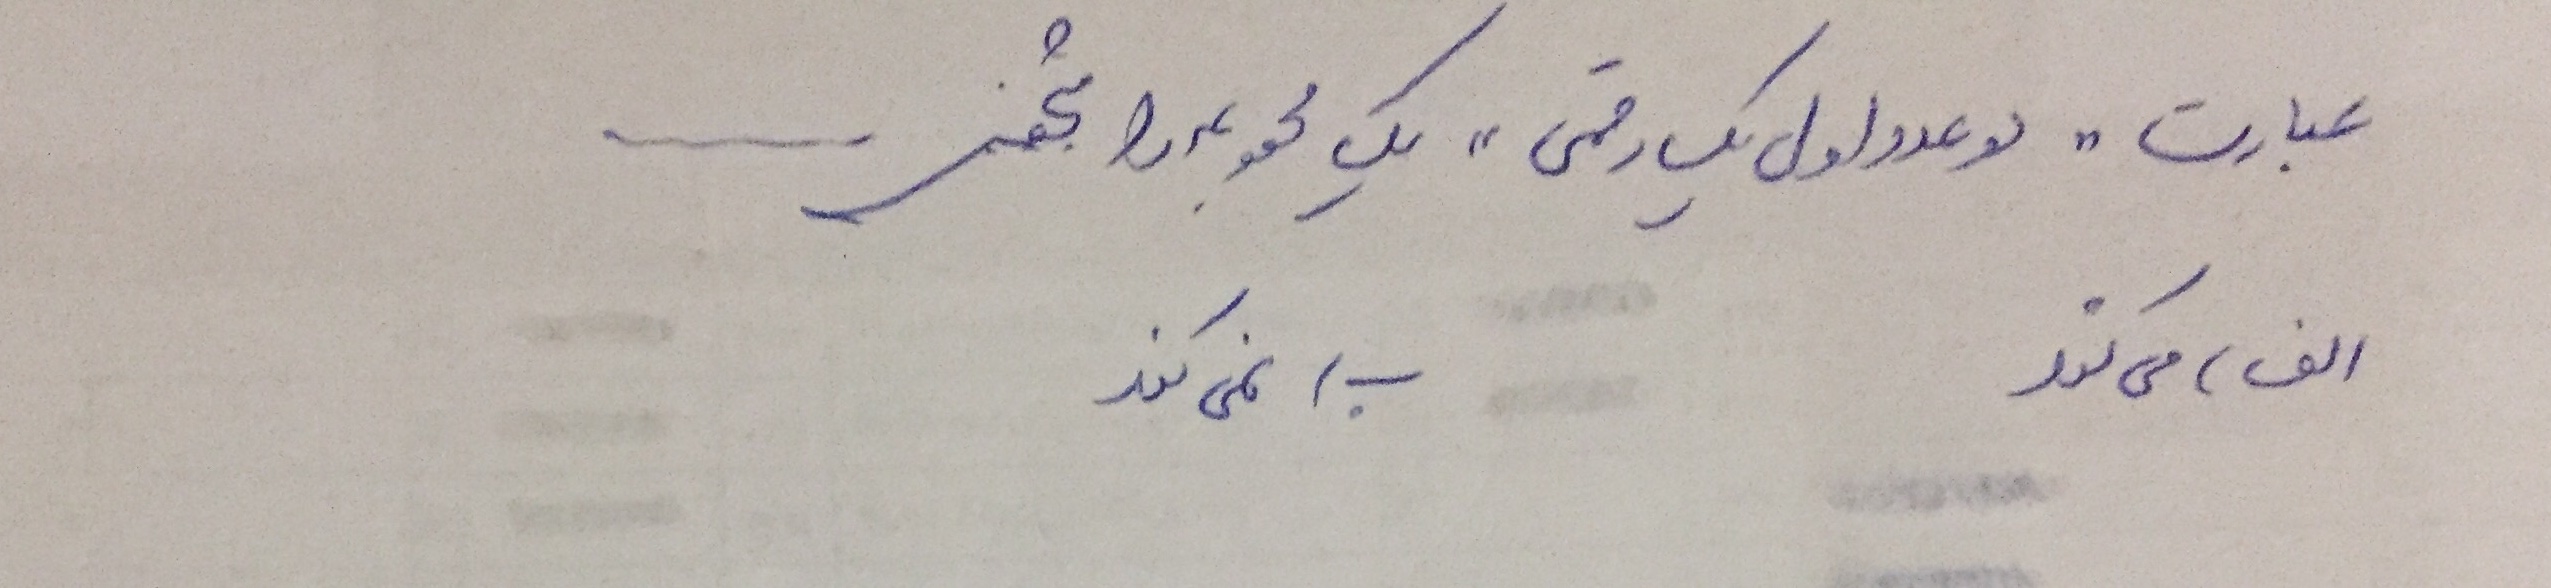 عبارت " دو عدد اول یک رقمی " یک مجموعه را مشخص ــــــ
الف) می کند
ب) نمی کند